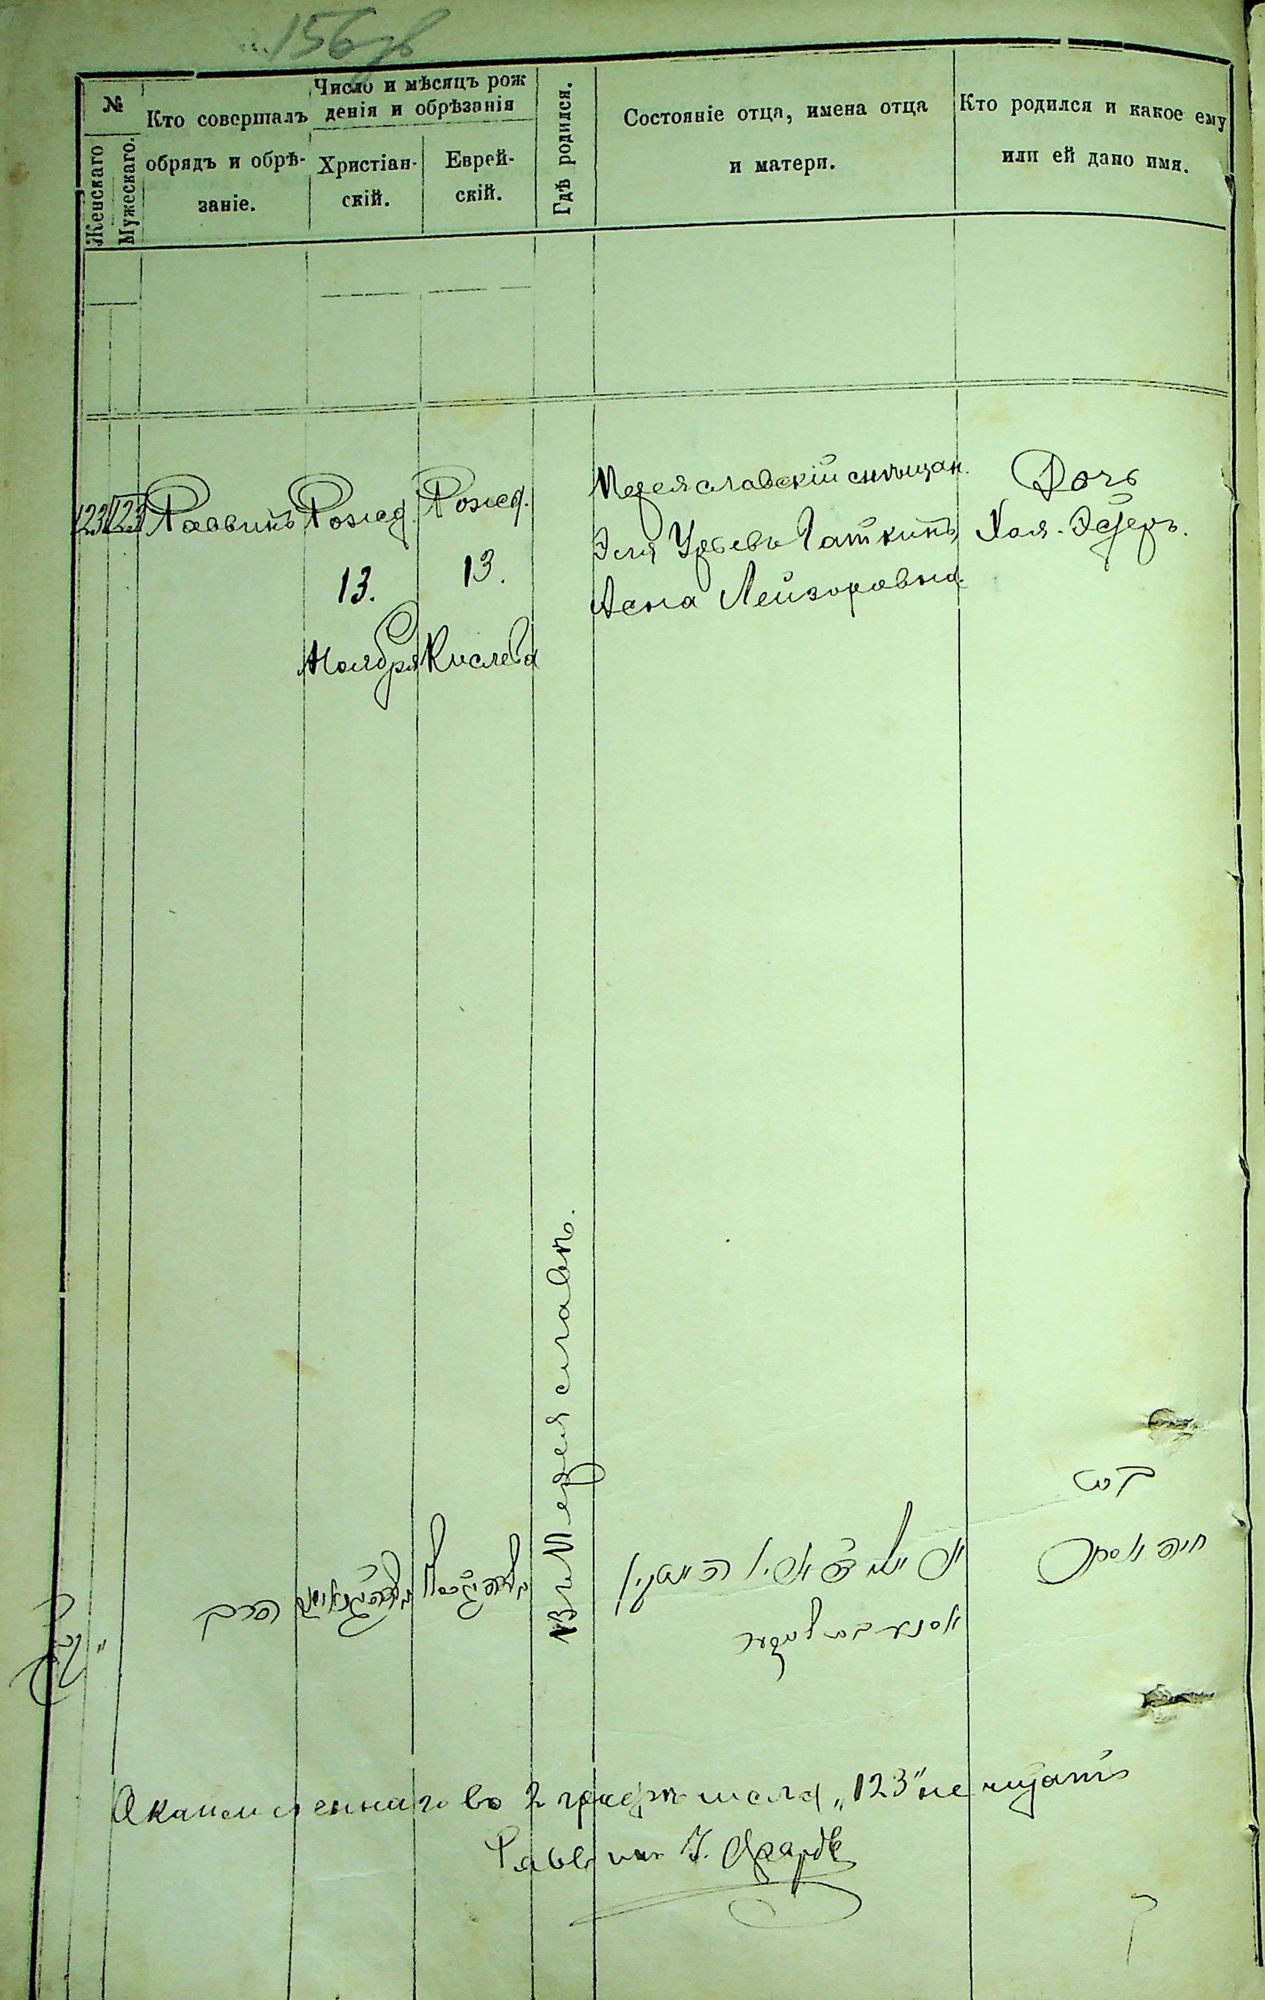 156 об
№
Женскаго
Мужескаго.
Кто совершалъ
обрядъ и обрѣ-
заніе.
Число и мѣсяцъ рож
денія и обрѣзанія
Христіан-
скій.
Еврей-
скій.
Гдѣ родился.
Состояніе отца, имена отца
и матери.
Кто родился и какое ему
или ей дано имя.
123
123
Раввинъ
Рожд.
13.
Ноября
Рожд.
13.
Кислева
Въ Переяславѣ.
Переяславскій мѣщан.
Эля Урьевъ Гаткинъ
Асна Лейзоровна
Дочь
Хая-Эстеръ.
הרב
בת
חיה אסתר
во 2 графѣ числа „123" не читать
Раввинъ